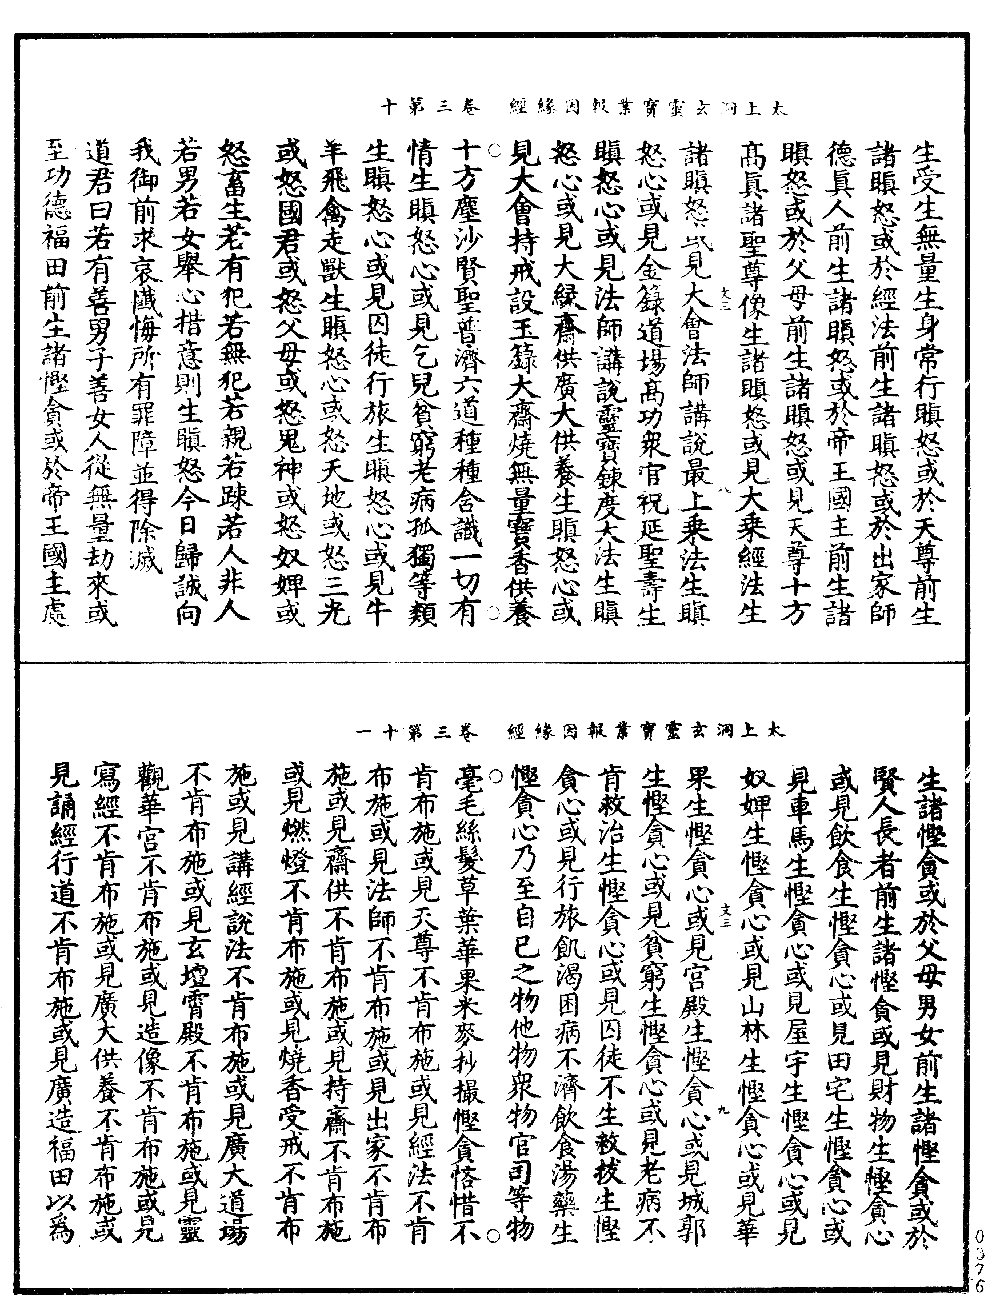 太上洞玄靈寶業報因緣經　卷三第十
生受生無量生身常行瞋怒或於天尊前生
諸瞋怒或於經法前生諸瞋怒或於出家師
德真人前生諸瞋怒或於帝王國主前生諸
瞋怒或於父母前生諸瞋怒或見天尊十方
高真諸聖尊像生諸瞋怒或見大乘經法生
文三
八
諸瞋怒或見大會法師講說最上乘法生瞋
怒心或見金籙道場高功眾官祝延聖壽生
瞋怒心或見法師講說靈寶鍊度大法生瞋
怒心或見大緣齋供廣大供養生瞋怒心或
見大會持戒設玉籙大齋燒無量寶香供養
十方塵沙賢聖普濟六道種種含識一切有
情生瞋怒心或見乞兒貧窮老病孤獨等類
生瞋怒心或見囚徒行旅生瞋怒心或見牛
羊飛禽走獸生瞋怒心或怒天地或怒三光
或怒國君或怒父母或怒鬼神或怒奴婢或
怒畜生若有犯若無犯若親若踈若人非人
若男若女舉心措意則生瞋怒今日歸誠向
我御前求哀懺悔所有罪障並得除滅
道君曰若有善男子善女人從無量劫來或
至功德福田前生諸慳貪或於帝王國主處
太上洞玄靈寶業報因緣經　卷三第十一
生諸慳貪或於父母男女前生諸慳貪或於
賢人長者前生諸慳貪或見財物生慳貪心
或見飲食生慳貪心或見田宅生慳貪心或
見車馬生慳貪心或見屋宇生慳貪心或見
奴婢生慳貪心或見山林生慳貪心或見華
文三
九
果生慳貪心或見宮殿生慳貪心或見城郭
生慳貪心或見貧窮生慳貪心或見老病不
肯救治生慳貪心或見囚徒不生救拔生慳
貪心或見行旅飢渴困病不濟飲食湯藥生
慳貪心乃至自己之物他物眾物官司等物
毫毛絲髮草葉華果米麥抄撮慳貪悋惜不
肯布施或見天尊不肯布施或見經法不肯
布施或見法師不肯布施或見出家不肯布
施或見齋供不肯布施或見持齋不肯布施
或見燃燈不肯布施或見燒香受戒不肯布
施或見講經說法不肯布施或見廣大道場
不肯布施或見玄壇霄殿不肯布施或見靈
觀華宮不肯布施或見造像不肯布施或見
寫經不肯布施或見廣大供養不肯布施或
見誦經行道不肯布施或見廣造福田以為
0376